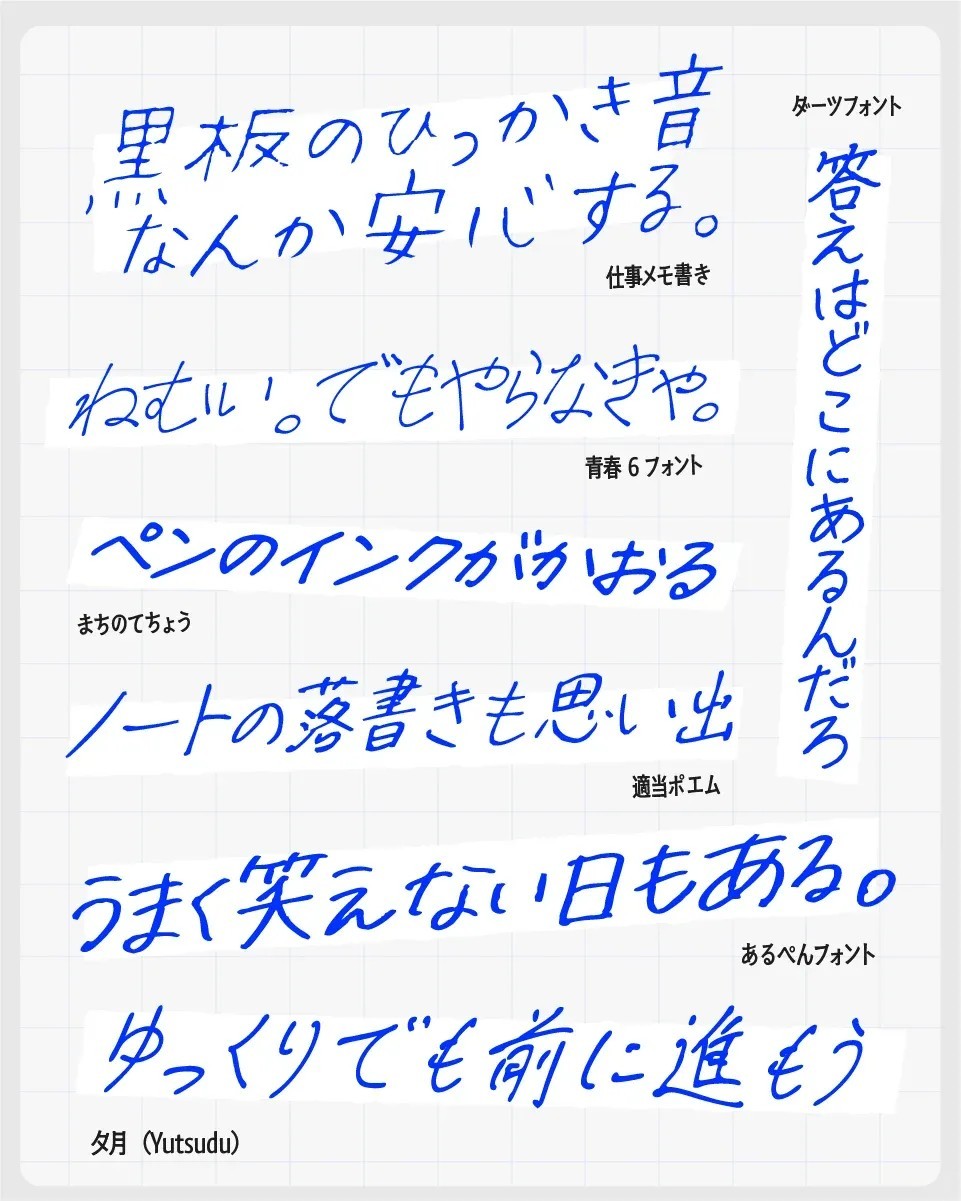 黒板のひっかき音
なんか安心する。
仕事メモ書き
ダーツフォント
答えはどこにあるんだろ
ねむい。でもやらなきゃ。
青春6フォント
ペンのインクがかおる
まちのてちょう
ノートの落書きも思い出
適当ポエム
うまく笑えない日もある。
あるぺんフォント
ゆっくりでも前に進もう
夕月（Yutsudu）